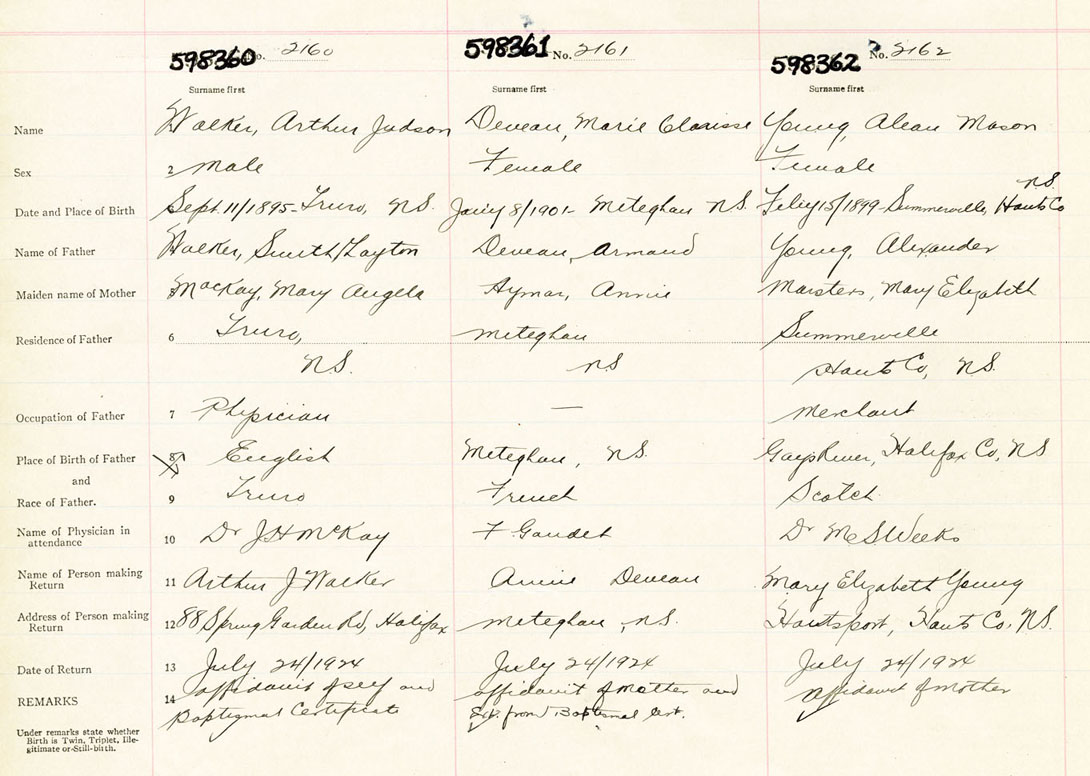 598360 No. 2160 598361 No. 2161 598362 No. 2162
Surname first Surname first Surname first
Name Walker, Arthur Judson Deveau, Marie Clarisse Young, Alean Mason
Sex 2 Male Female Female
N.S.
Date and Place of Birth Sept. 11/1895 - Truro, N.S. Jany 8/1901 - Meteghan N.S. Feby 15/1899 - Summerville, Hants Co
Name of Father Walker, Smith Layton Deveau, Armand Young, Alexander
Maiden name of Mother 5 MacKay, Mary Angela Aymar, Annie Marsters, Mary Elizabeth
Residence of Father 6 Truro, Meteghan Summerville
N.S. N.S Hants Co, N.S.
Occupation of Father 7 Physician — Merchant
Place of Birth of Father 8 English Meteghan, N.S. Gays River, Halifax Co, N.S
and
Race of Father. 9 Truro French Scotch
Name of Physician in
attendance 10 Dr J H McKay F Gaudet Dr M S Weeks
Name of Person making
Return 11 Arthur J Walker Annie Deveau Mary Elizabeth Young
Address of Person making
Return 12 88 Spring Garden Rd, Halifax Meteghan, N.S. Hantsport, Hants Co. N.S.
Date of Return 13 July 24/1924 July 24/1924 July 24/1924
REMARKS 14 affidavit of self and affidavit of Mother and Affidavit of Mother
Baptismal Certificate Ext. from Baptismal Cert.
Under remarks state whether
Birth is Twin, Triplet, Ille-
gitimate or Still-birth.